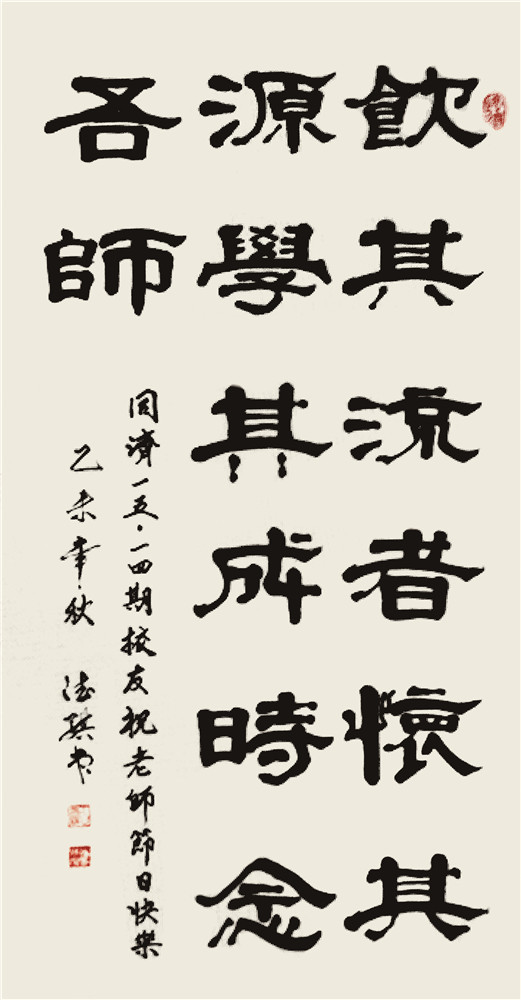 飲其流者懷其
源學其成時念
吾師
同濟一五·一四期校友祝老師節日快樂
乙未年秋 德騏書